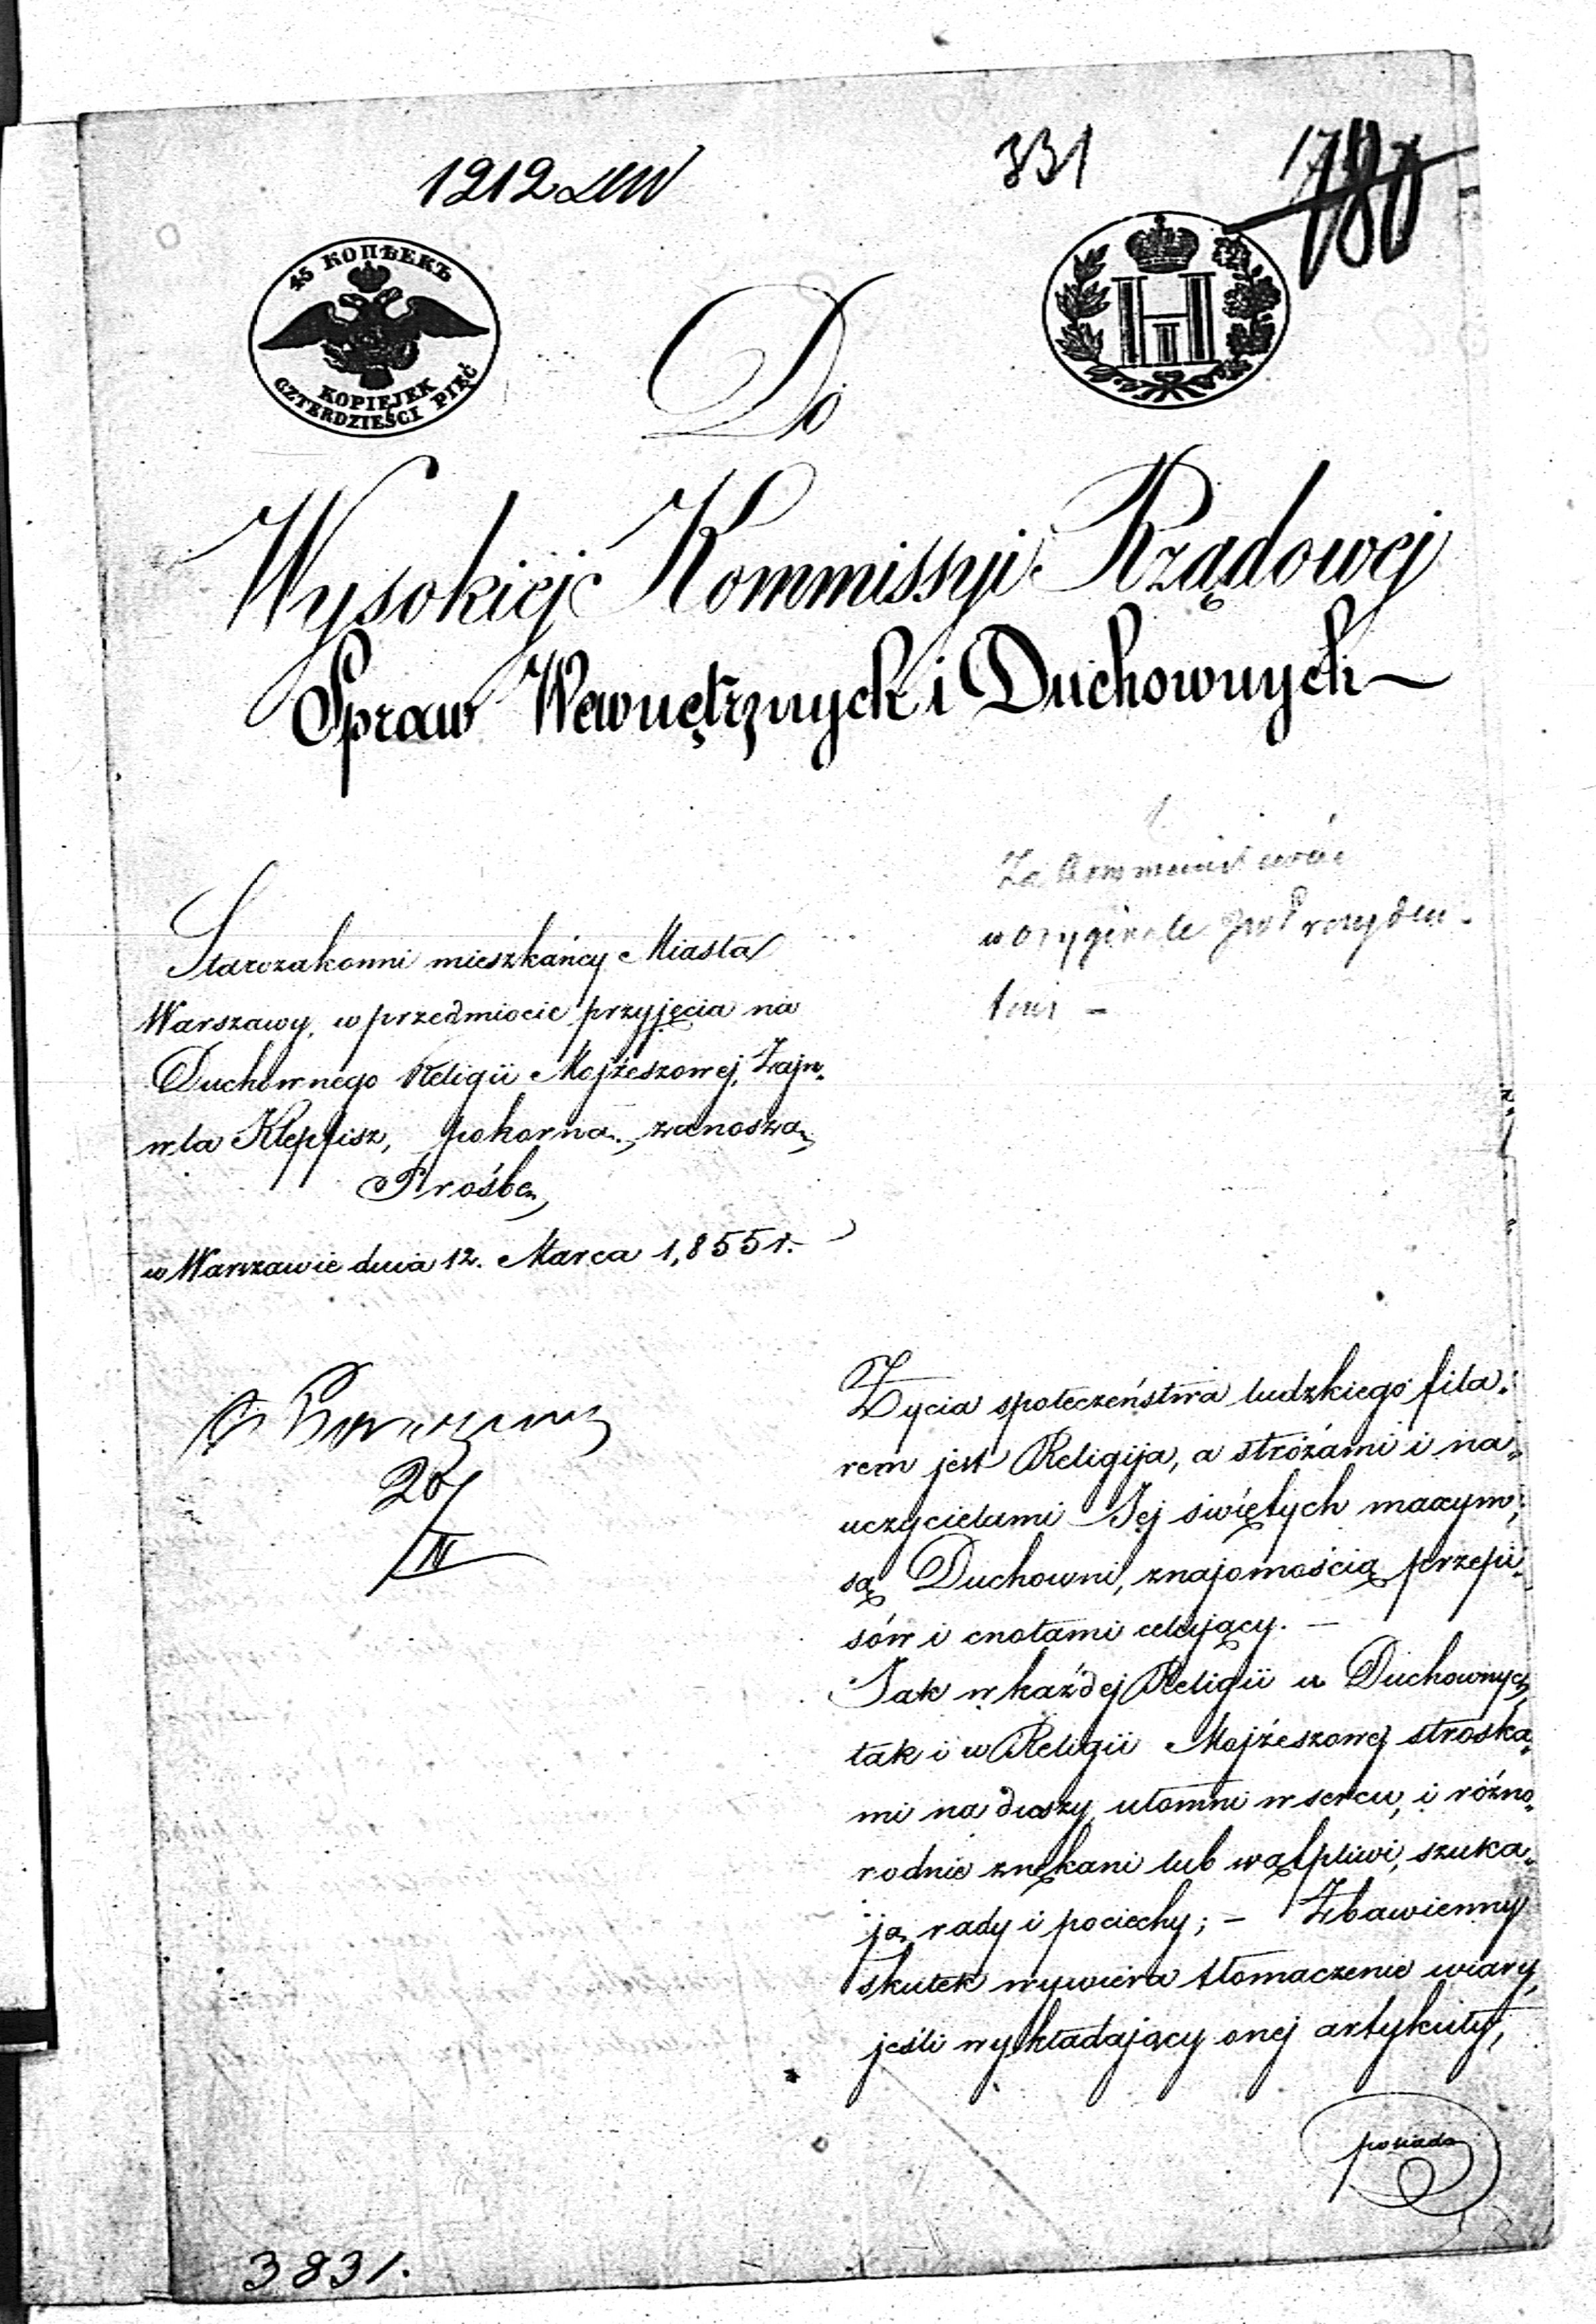 1212
331
45 КОПѢЕКЪ
KOPIEJEK
CZTERDZIEŚCI PIĘĆ
Do
Wysokiej Kommissyi Rządowej
Spraw Wewnętrznych i Duchownych
w oryginale
Starozakonni mieszkańcy Miasta
Warszawy, w przedmiocie przyjęcia na
Duchownego Religii Mojżeszowej, Zajn-
wla Klepfisz, pokorną zanoszą
Prośbę,
w Warszawie dnia 12. Marca 1,855 r.
20/IV
Życia społeczeństwa ludzkiego fila-
rem jest Religija, a stróżami i na-
uczycielami Jej świętych maxym,
są Duchowni, znajomością przepi-
sów i cnotami celujący. —
Jak w każdej Religii u Duchownych
tak i w Religii Mojżeszowej stroska-
ni na duszy, ułomni w sercu, i różno-
rodnie znękani lub wątpliwi, szuka-
ją rady i pociechy; – Zbawienny
skutek wywiera tłomaczenie wiary,
jeśli wykładający onej artykuły,
posiada
3831.